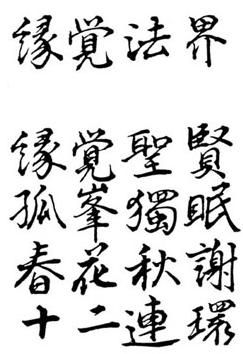 縁覚法界
縁覚聖賢
孤峯獨眠
春花秋謝
十二連環